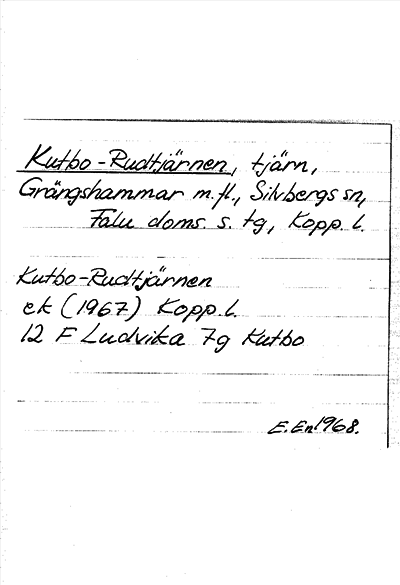 Kutbo-Rudtjärnen, tjärn,
Grängshammar m.fl., Silvbergs sn,
Falu doms. s. tg, Kopp. l.
Kutbo-Rudtjärnen
ek (1967) Kopp. l.
12 F Ludvika 7g Kutbo
E. En 1968.